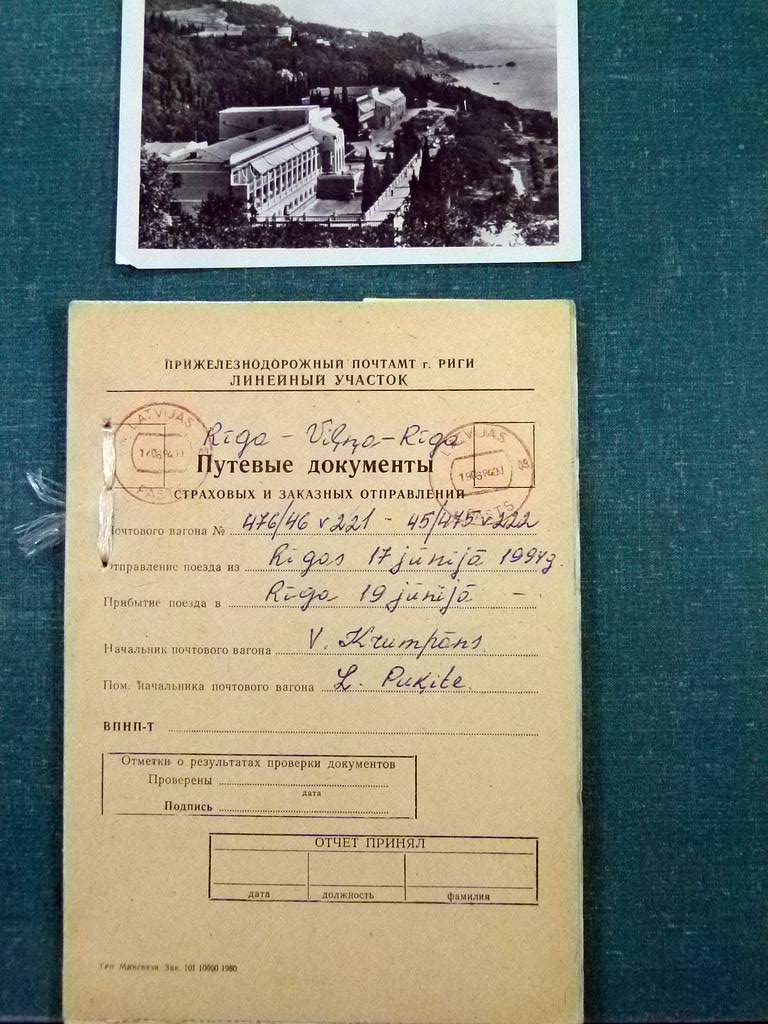 ПРИЖЕЛЕЗНОДОРОЖНЫЙ ПОЧТАМТ г. РИГИ
ЛИНЕЙНЫЙ УЧАСТОК
LATVIJAS
PASTS
Rīga - Viļņa - Rīga
LATVIJAS
PASTS
Путевые документы
СТРАХОВЫХ И ЗАКАЗНЫХ ОТПРАВЛЕНИЙ
Почтового вагона № 476/46 v 221 - 45/475 v 222
Отправление поезда из Rīgas 17 jūnijā 1994g.
Прибытие поезда в Rīga 19 jūnijā -
Начальник почтового вагона V. Krumpāns
Пом. начальника почтового вагона L. Puķite.
ВПНП-Т
Отметки о результатах проверки документов
Проверены
дата
Подпись
ОТЧЕТ ПРИНЯЛ
дата должность фамилия
Тип. Минсвязи Зак. 101 10000 1980